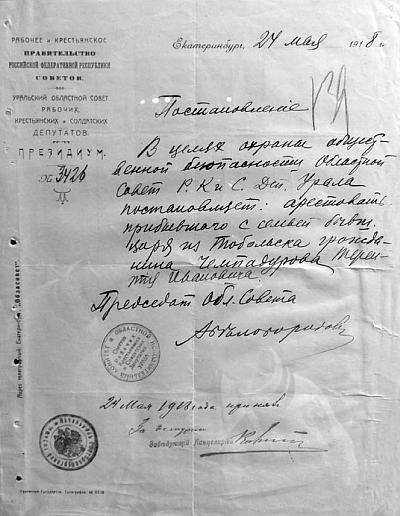 РАБОЧЕЕ и КРЕСТЬЯНСКОЕ
ПРАВИТЕЛЬСТВО
РОССИЙСКОЙ ФЕДЕРАТИВНОЙ РЕСПУБЛИКИ
СОВЕТОВ.
УРАЛЬСКИЙ ОБЛАСТНОЙ СОВЕТ
РАБОЧИХ,
КРЕСТЬЯНСКИХ и СОЛДАТСКИХ
ДЕПУТАТОВ.
ПРЕЗИДИУМ.
№ 3426
Екатеринбург, 24 мая 1918 г.
Постановление
В целях охраны общест-
венной безопасности Областной
Совет Р. К и С. Деп. Урала
постановляет: арестовать
прибывшего с семьей бывш.
царя из Тобольска гражда-
нина Чемадурова Терен-
тия Ивановича.
Председат Обл. Совета
А Белобородов
24 Мая 1918 года принят
За
Заведующий Канцелярией
Адрес телеграфный: Екатеринбург, „Областсовет"